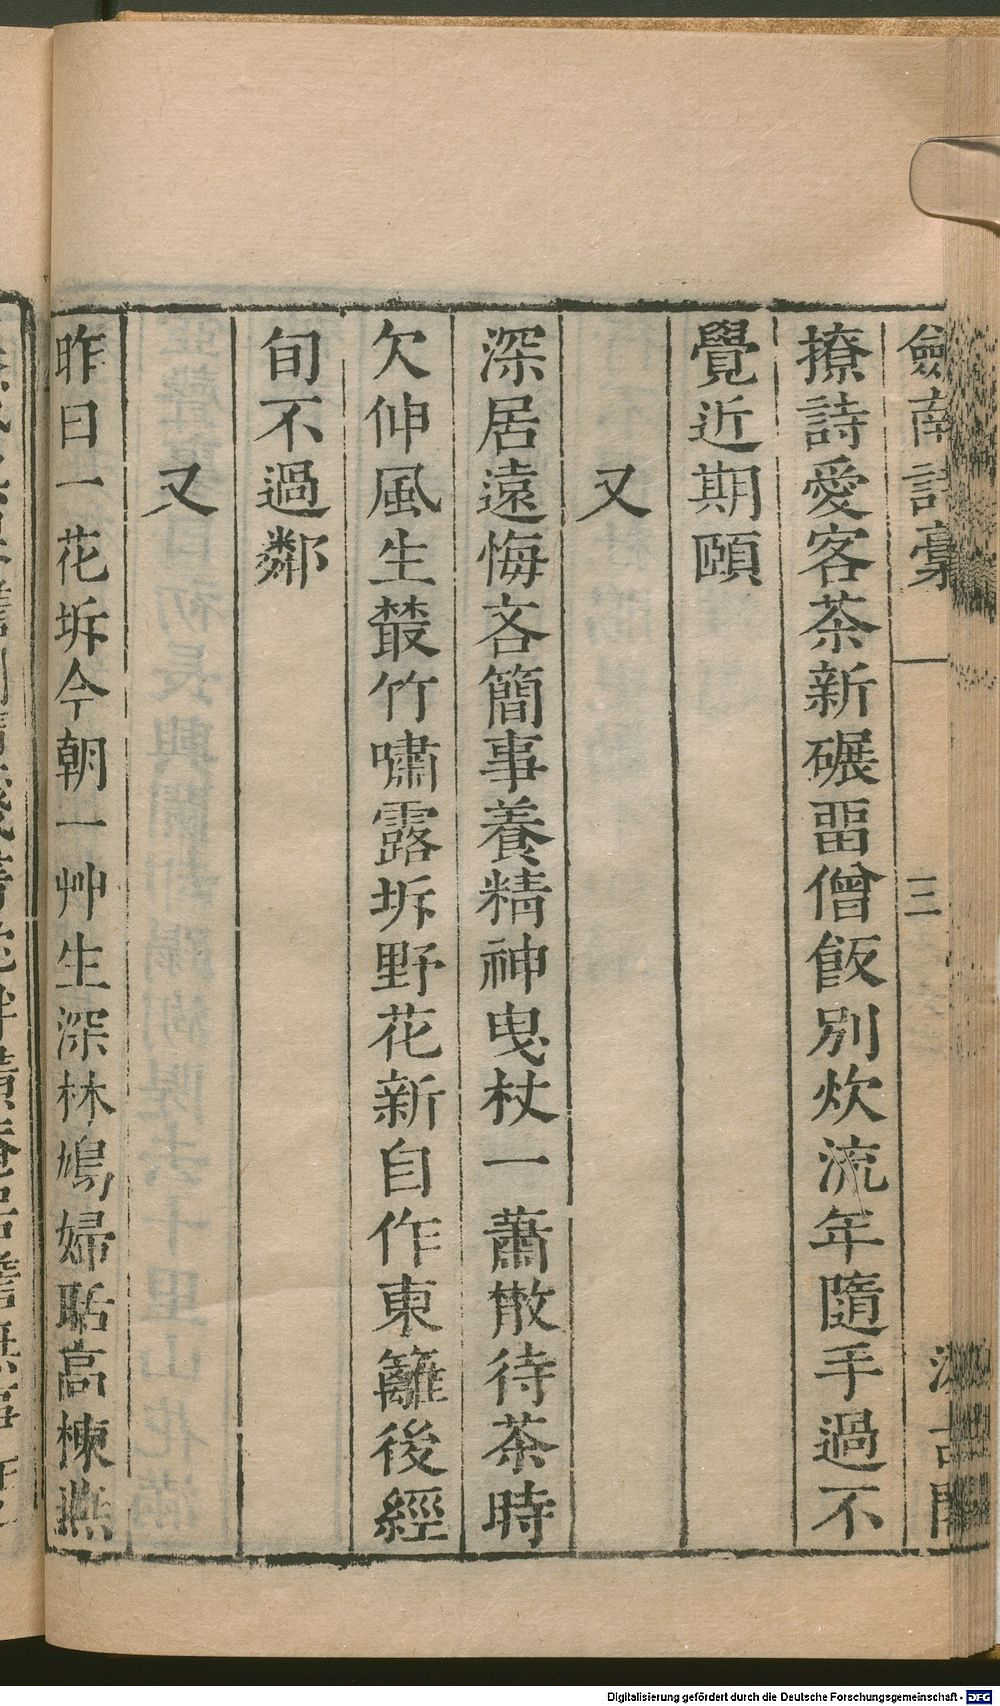 劒南詩稾
三
撩詩愛客茶新碾畱僧飯別炊流年隨手過不
覺近期頤
又
深居遠悔吝簡事養精神曳杖一蕭散待茶時
欠伸風生叢竹嘯露坼野花新自作東籬後經
旬不過鄰
又
昨日一花坼今朝一艸生深林鳩婦聒高棟燕
Digitalisierung gefördert durch die Deutsche Forschungsgemeinschaft - DFG